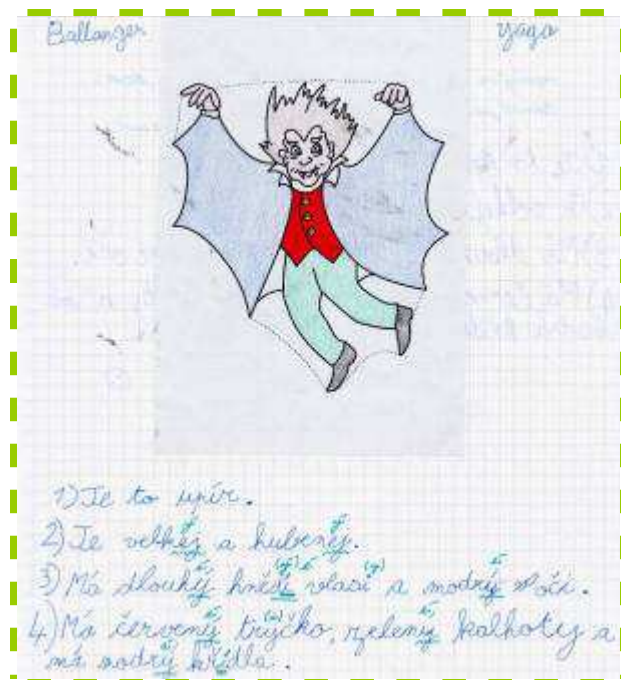 Ballanger yago
1) Je to upír.
2) Je velkéj a hubenéj.
3) Má dlouhý vlasi a modrý oči.
4) Má červený tryčko, zelený kalhoty a
má modrý křídla.